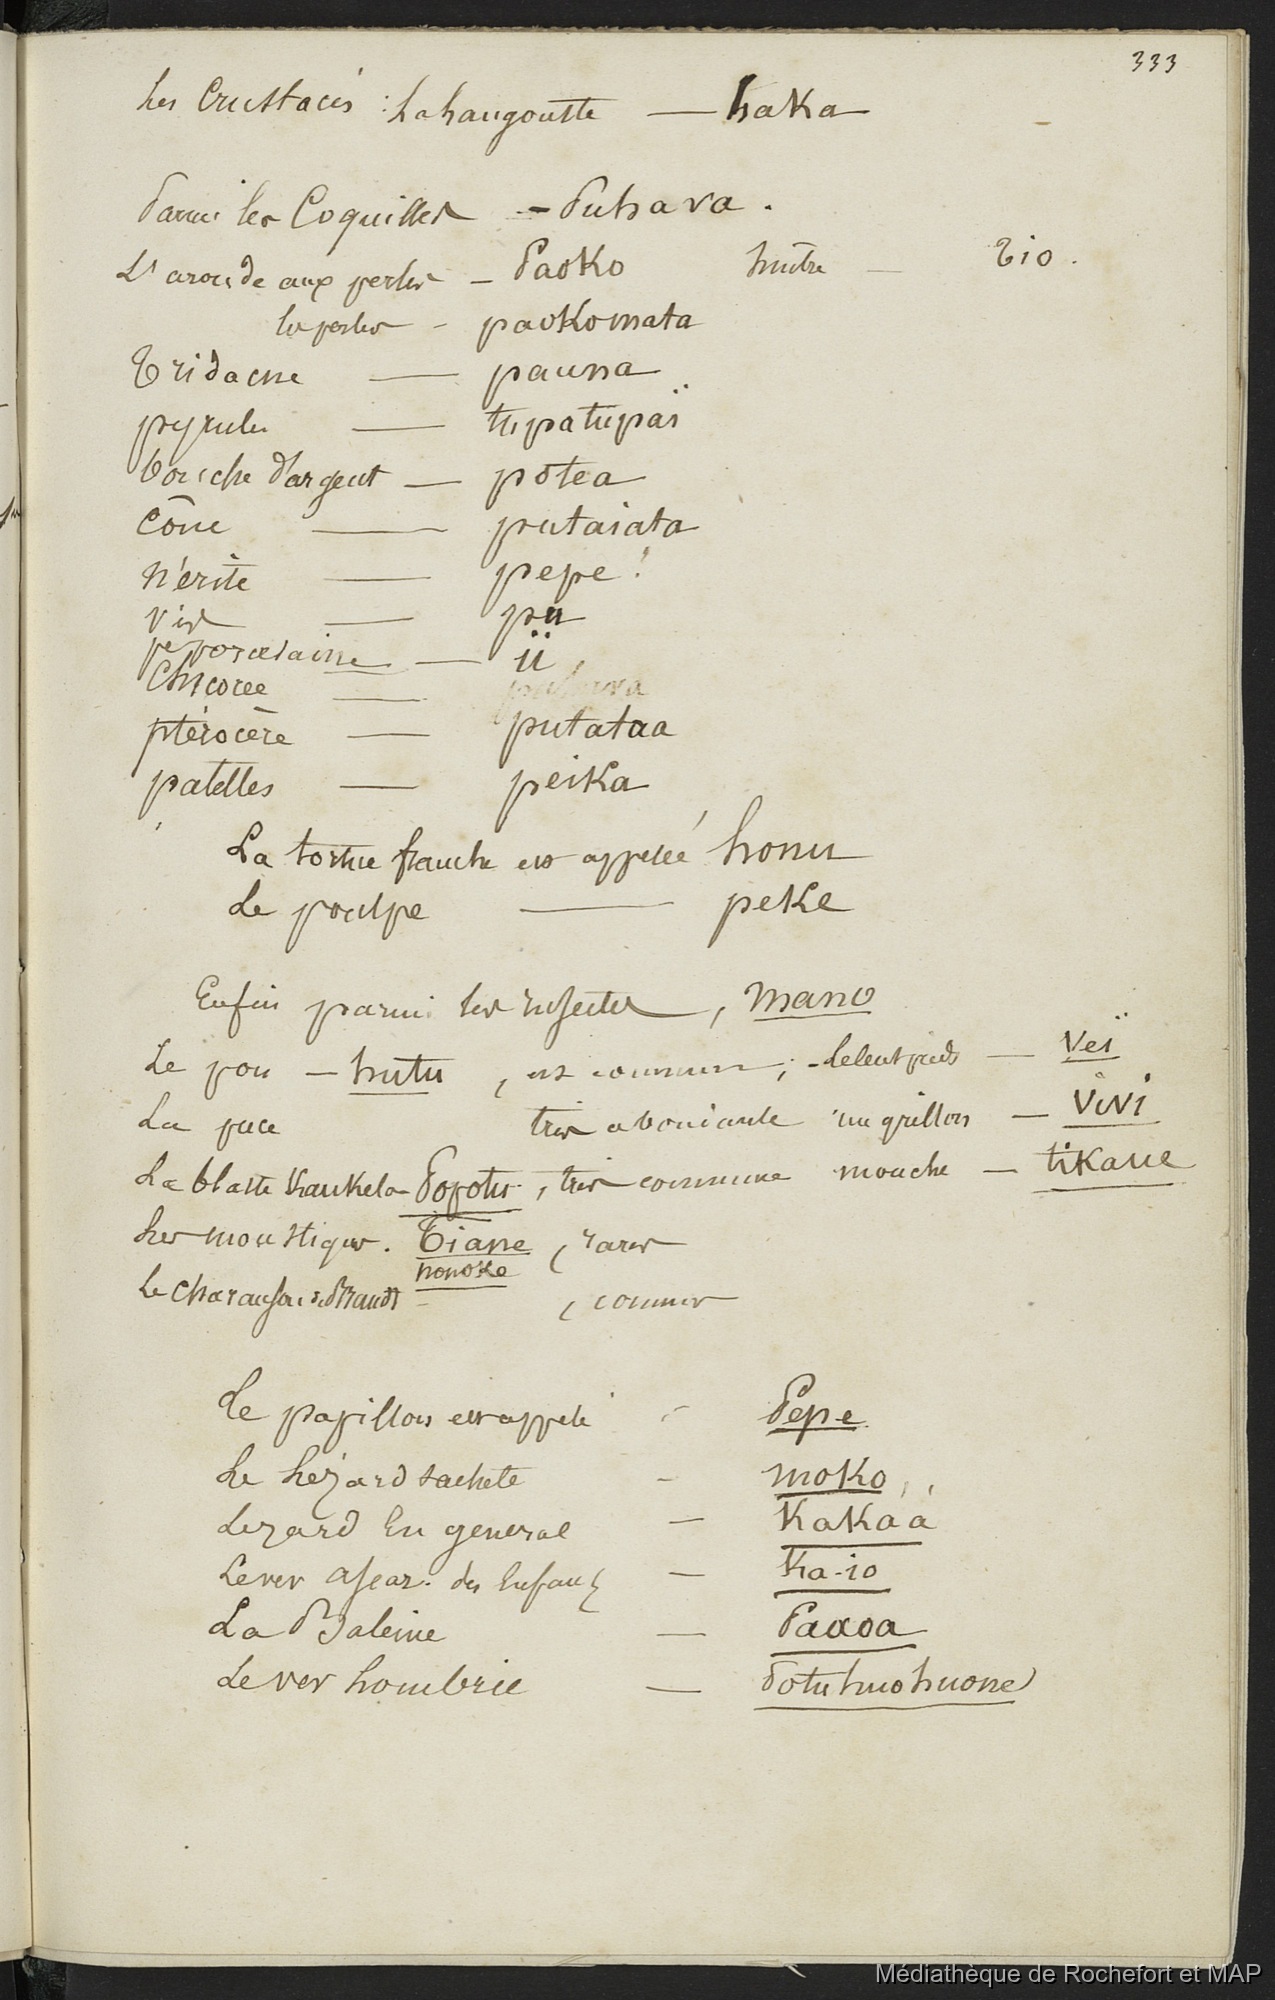 333
Les Crustacés : La Langouste — haka
Parmi les Coquilles - Puhava.
L'aronde aux perles - Paoko huitre - Tio.
les perles - paokomata
Tridacne — pauna
pyrules — tupatupaï
bouche d'argent — potea
Cône — putaiata
Nérite — pepe!
Vis — pu
pe porcelaine — ïï
Chicorée — puhava
ptérocère — putataa
patelles — peika
La tortue franche est appelée honu
Le poulpe — peke
Enfin parmi les insectes, mano
Le pou — hutu, est commun; - le Cent pieds — Veï
La puce très abondante un grillon — ViVi
La blatte Kankelar Popotu, très commune mouche — tikaue
Les moustiques. Tiape, rares
nonoke
Le Charanson — , commun
Le papillon est appelé - Pepe
Le Lézard tacheté - moko,,
Lezard En general — Kakaa
Le ver ascar. des Enfants — Ka-io
La Baleine — Paaoa
Le ver Lombric — Potuhuohuone
Médiathèque de Rochefort et MAP